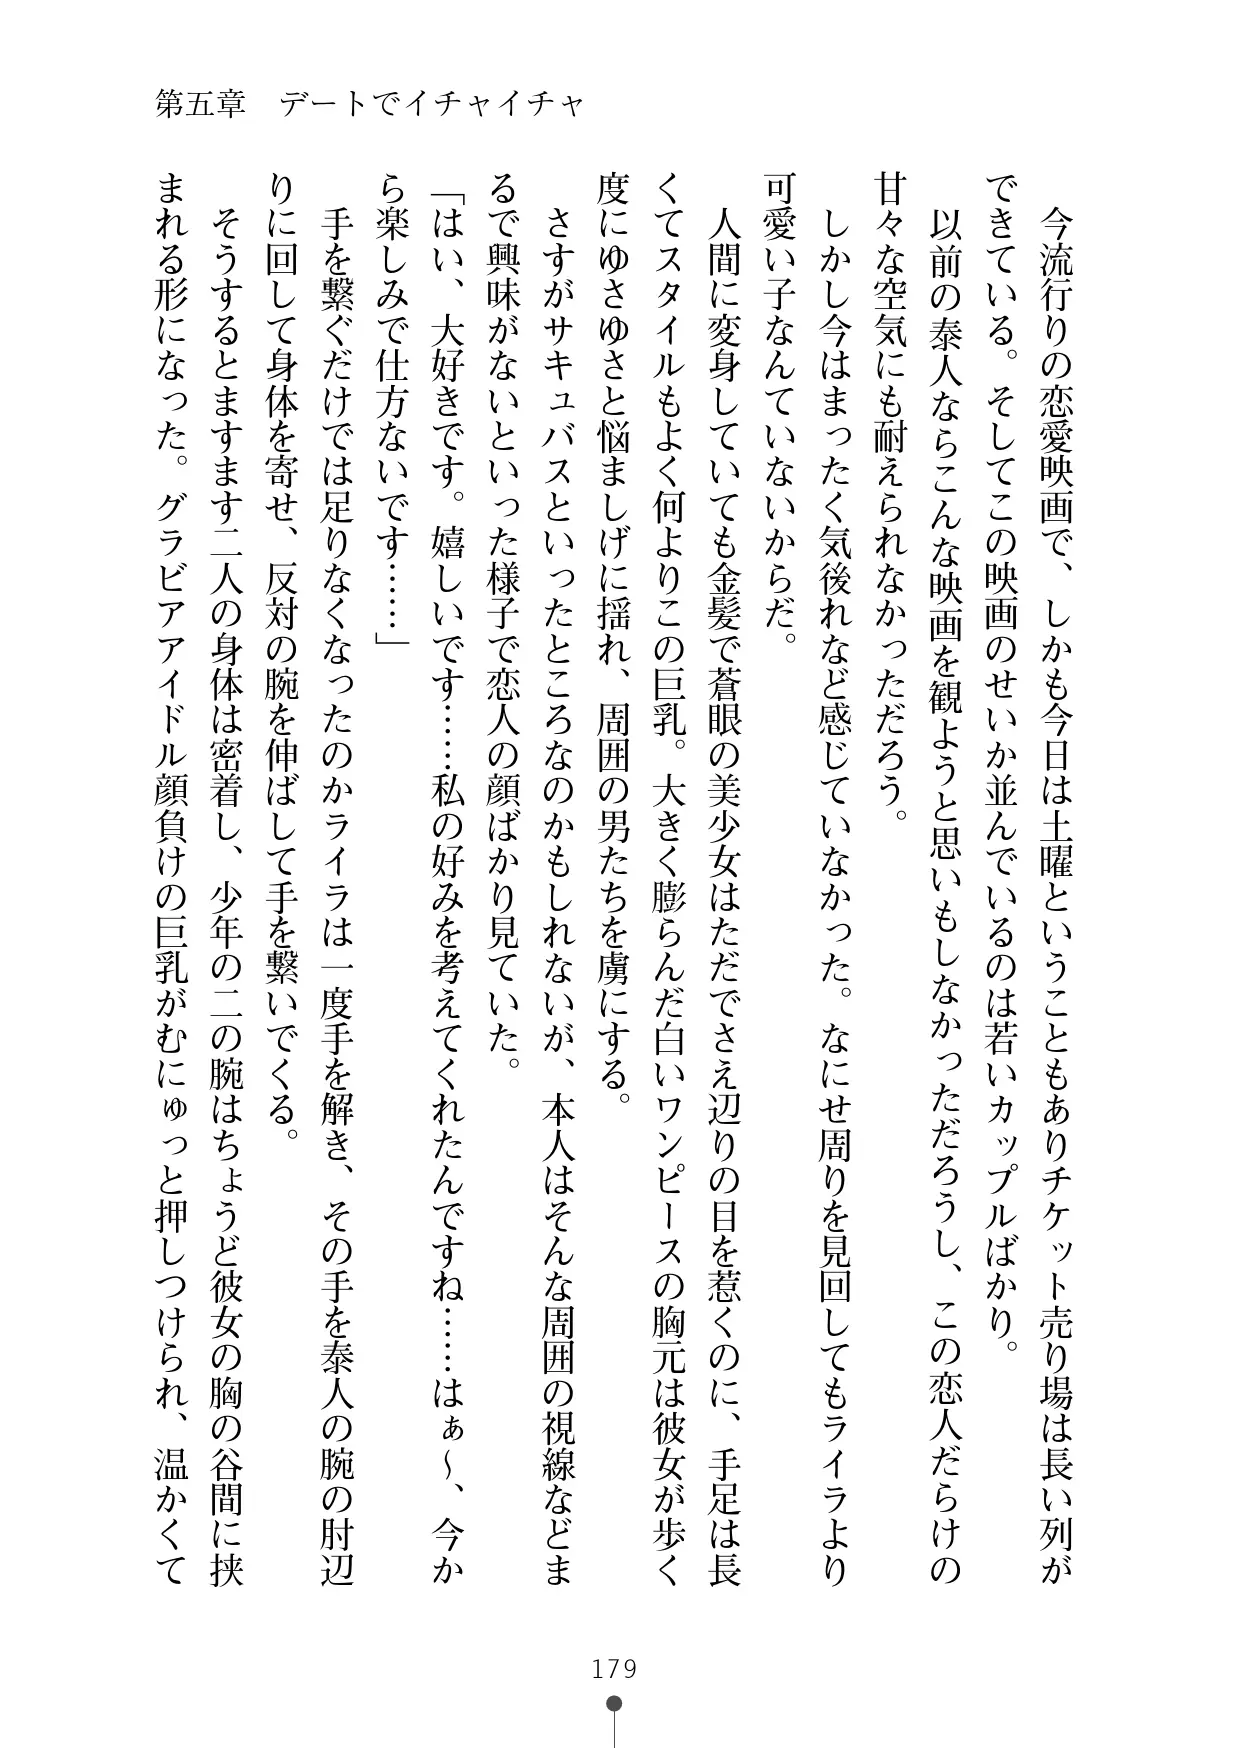 第五章　デートでイチャイチャ
　今流行りの恋愛映画で、しかも今日は土曜ということもありチケット売り場は長い列が
できている。そしてこの映画のせいか並んでいるのは若いカップルばかり。
　以前の泰人ならこんな映画を観ようと思いもしなかっただろうし、この恋人だらけの
甘々な空気にも耐えられなかっただろう。
　しかし今はまったく気後れなど感じていなかった。なにせ周りを見回してもライラより
可愛い子なんていないからだ。
　人間に変身していても金髪で蒼眼の美少女はただでさえ辺りの目を惹くのに、手足は長
くてスタイルもよく何よりこの巨乳。大きく膨らんだ白いワンピースの胸元は彼女が歩く
度にゆさゆさと悩ましげに揺れ、周囲の男たちを虜にする。
　さすがサキュバスといったところなのかもしれないが、本人はそんな周囲の視線などま
るで興味がないといった様子で恋人の顔ばかり見ていた。
「はい、大好きです。嬉しいです……私の好みを考えてくれたんですね……はぁ～、今か
ら楽しみで仕方ないです……」
　手を繋ぐだけでは足りなくなったのかライラは一度手を解き、その手を泰人の腕の肘辺
りに回して身体を寄せ、反対の腕を伸ばして手を繋いでくる。
　そうするとますます二人の身体は密着し、少年の二の腕はちょうど彼女の胸の谷間に挟
まれる形になった。グラビアアイドル顔負けの巨乳がむにゅっと押しつけられ、温かくて
179